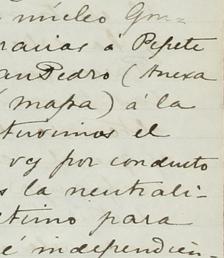 núcleo Gon=
racias á Pepete
an Pedro (Anexa
(mapa) á la
tuvimos el
voy por conducto
s la neutrali-
timo para
é independien